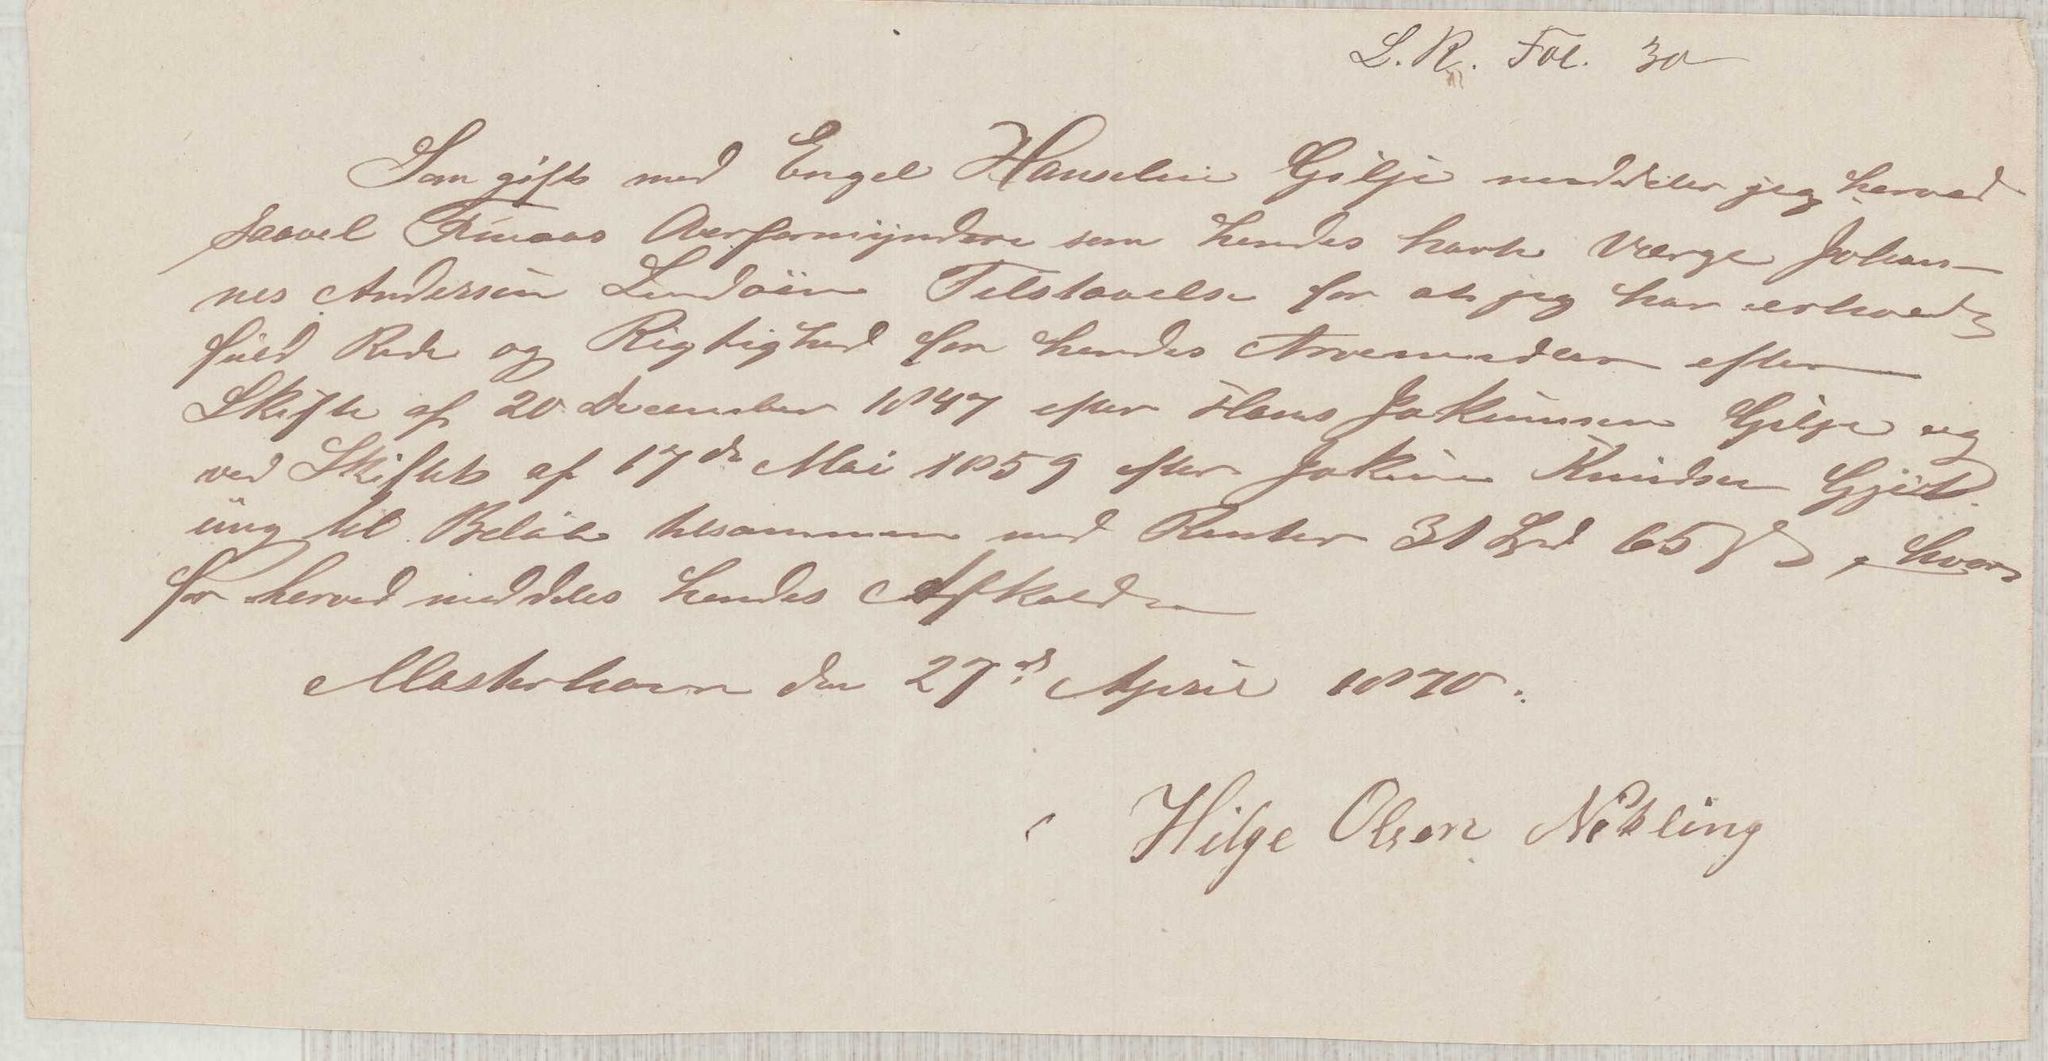 L.R. Fol. 30
Som gift med Engel Hanselin Gilje meddeler jeg herved
saavel Finaas Overformynderi som hendes havte Værge Johan-
nes Andersen Lindøen Tilstaaelse for at jeg har erholdt
fuld Rede og Rigtighed for hendes Arvemidler efter
Skifte af 20 December 1847 efter Hans Jokumsen Gilje og
ved Skiftet af 17de Mai 1859 efter Jokum Knudsen
til Beløb tilsammen med Renter 31 Spd 65 s, hvor-
for herved meddeles hendes Afkald
Mosterhavn den 27de April 1870.
Hilge Olsen Nækling